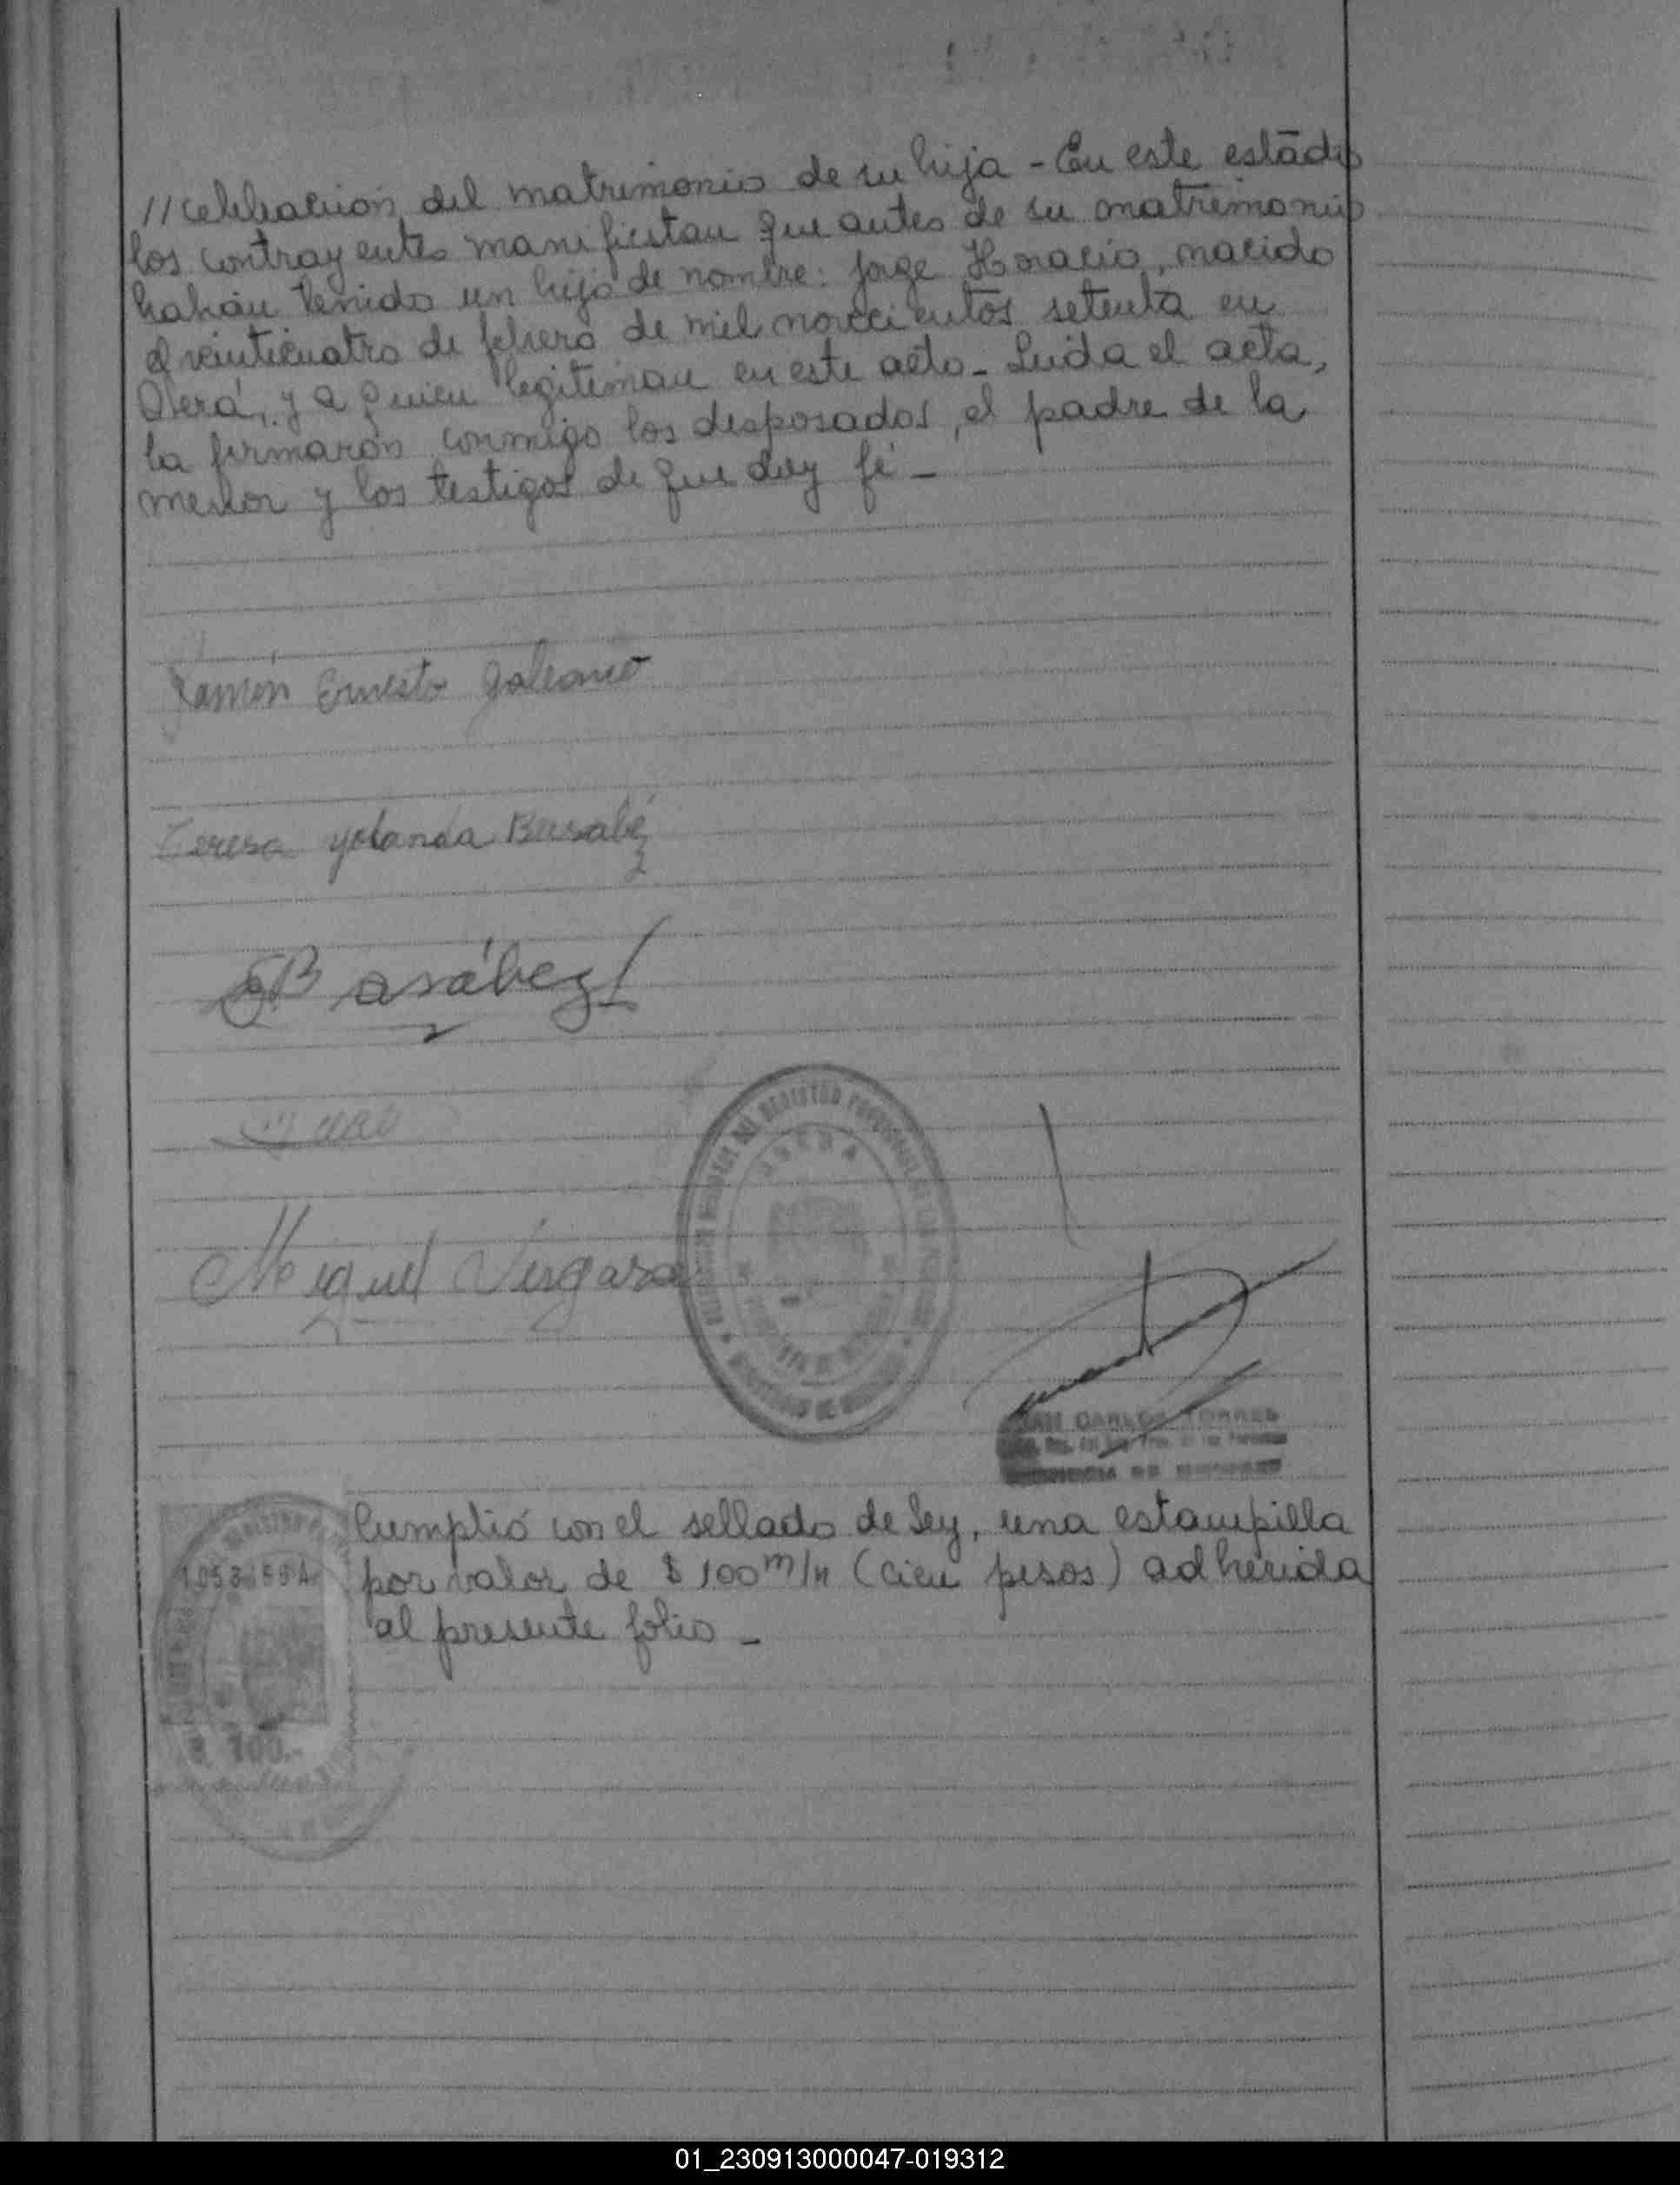 //celebración del matrimonio de su hija - En este estado
los contrayentes manifiestan que antes de su matrimonio
habían tenido un hijo de nombre: Jorge Horacio, nacido
el veinticuatro de febrero de mil novecientos setenta en
Oberá, y a quien legitiman en este acto - Leída el acta,
la firmaron conmigo los desposados, el padre de la
menor y los testigos de que doy fé -
Ramón Ernesto Galeano
Teresa Yolanda Basabez
Basábez
Miguel Vergara
OBERA
JUAN CARLOS TORRES
PROVINCIA DE MISIONES
Cumplió con el sellado de Ley, una estampilla
por valor de $ 100 m/n (cien pesos) adherida
al presente folio -
$ 100.-
01_230913000047-019312